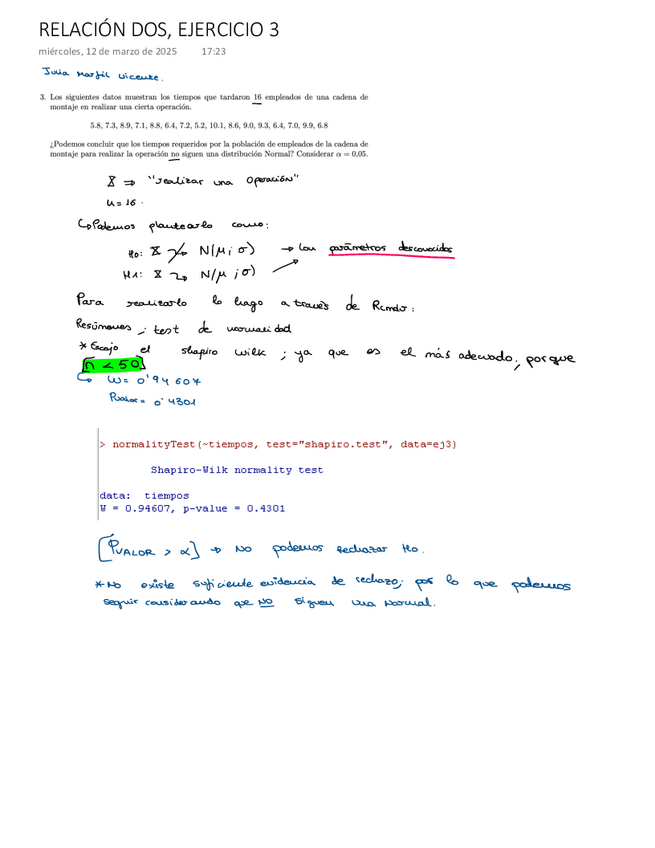 RELACIÓN DOS, EJERCICIO 3
miércoles, 12 de marzo de 2025 17:23
Julia Marfil Vicente.
3. Los siguientes datos muestran los tiempos que tardaron 16 empleados de una cadena de
montaje en realizar una cierta operación.
5.8, 7.3, 8.9, 7.1, 8.8, 6.4, 7.2, 5.2, 10.1, 8.6, 9.0, 9.3, 6.4, 7.0, 9.9, 6.8
¿Podemos concluir que los tiempos requeridos por la población de empleados de la cadena de
montaje para realizar la operación no siguen una distribución Normal? Considerar α = 0,05.
X ⇒ "realizar una operación"
n = 16.
↳ Podemos plantearlo como:
H0: X ↛ N(μ; σ) → Con parámetros desconocidos
H1: X → N(μ; σ)
Para realizarlo lo hago a través de Rcmdr:
Resúmenes; test de normalidad
* Escojo el shapiro wilk; ya que es el más adecuado, porque
n < 50
↳ W = 0'94607
Pvalor = 0'4301
> normalityTest(~tiempos, test="shapiro.test", data=ej3)
Shapiro-Wilk normality test
data: tiempos
W = 0.94607, p-value = 0.4301
[PVALOR > α] → No podemos Rechazar H0.
* No existe suficiente evidencia de rechazo; por lo que podemos
seguir considerando que NO siguen una normal.